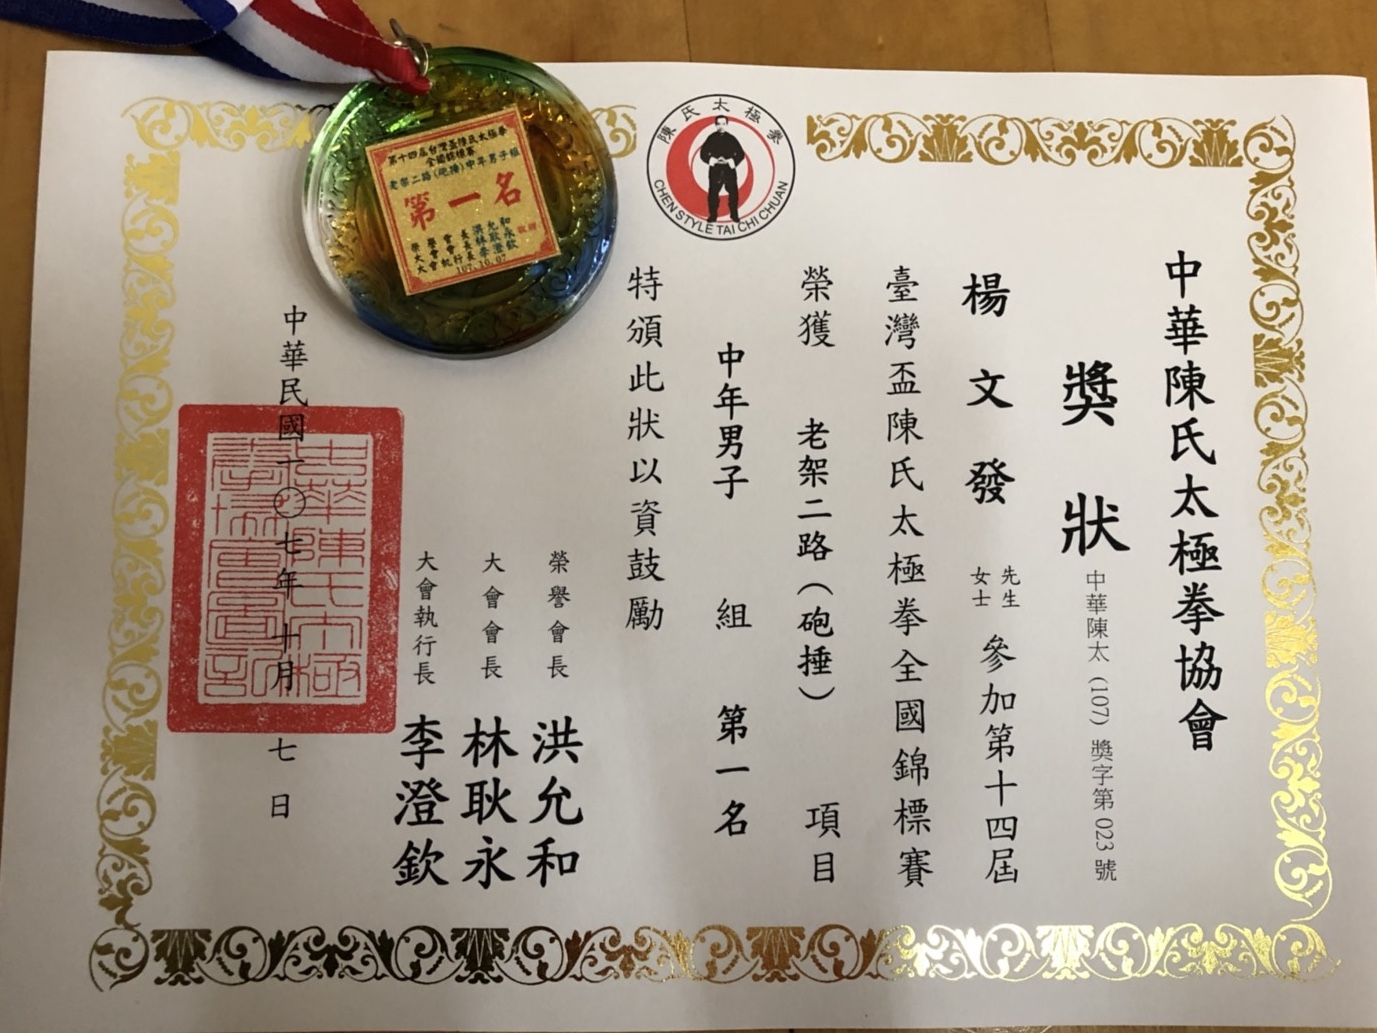 中華陳氏太極拳協會
獎狀
中華陳太 (107) 獎字第 023 號
楊文發 先生 女士 參加第十四屆
臺灣盃陳氏太極拳全國錦標賽
榮獲 老架二路(砲捶) 項目
中年男子 組 第一名
特頒此狀以資鼓勵
榮譽會長 洪允和
大會會長 林耿永
大會執行長 李澄欽
中華民國一〇七年十月七日
陳氏太極拳
CHEN STYLE TAI CHI CHUAN
第十四屆台灣盃陳氏太極拳
全國錦標賽
老架二路(砲捶)中年男子組
第一名
榮譽會長洪允和
大會會長林耿永
大會執行長李澄欽
敬贈
107.10.07
中華陳氏太極
拳協會圖記